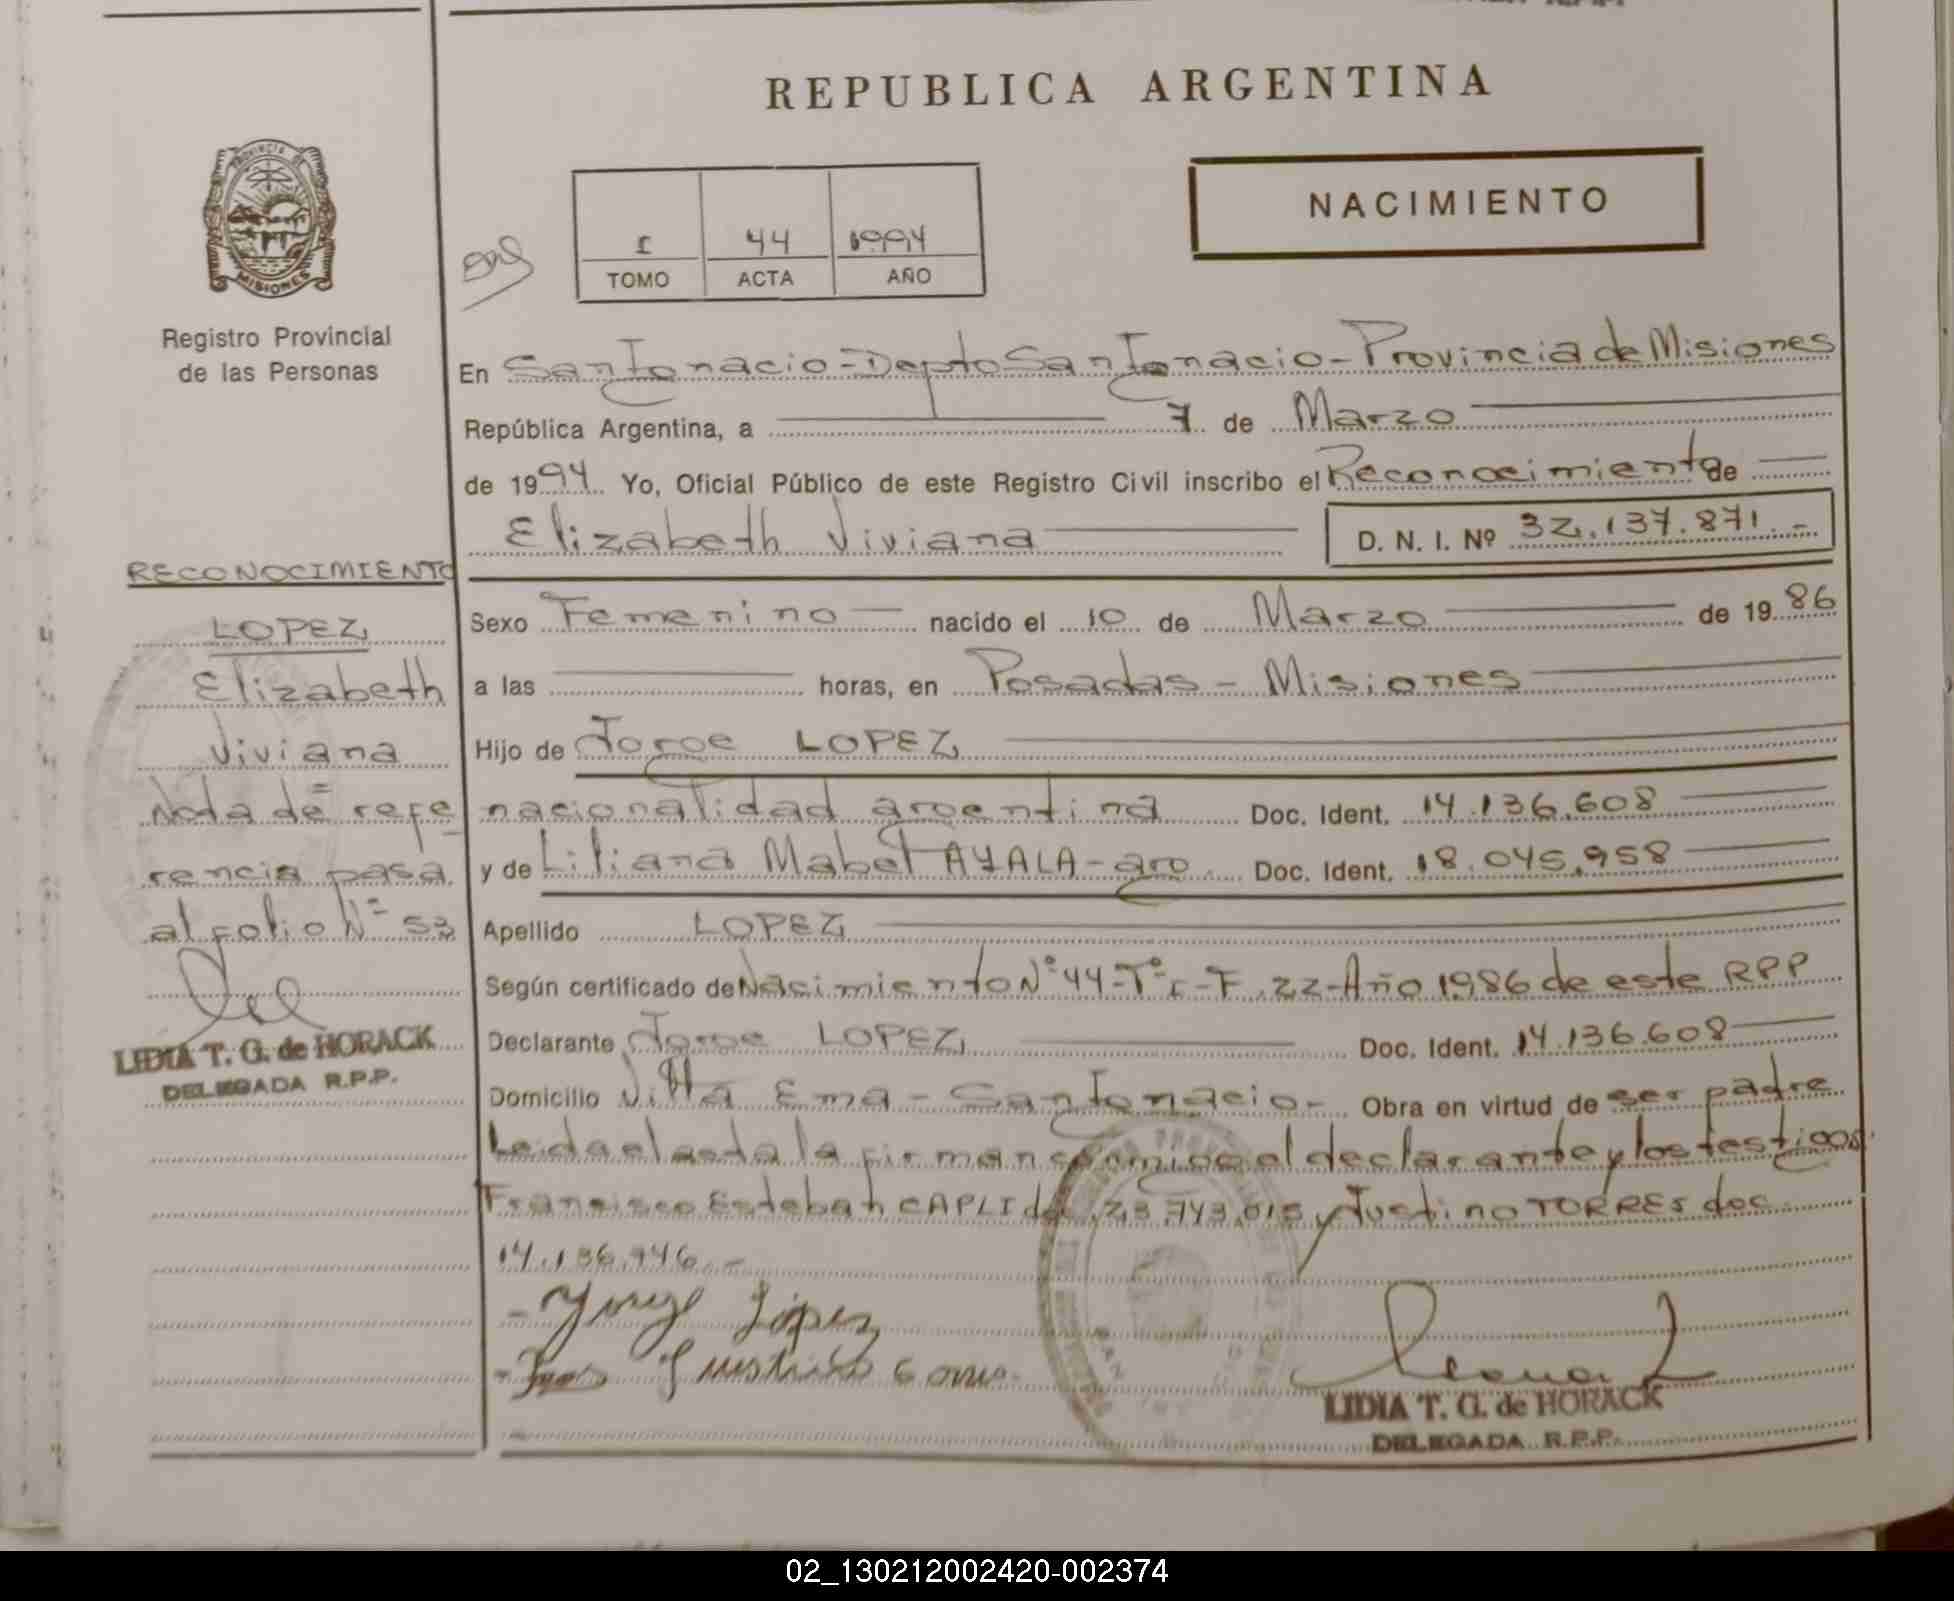 REPUBLICA ARGENTINA
PROVINCIA DE
MISIONES
Registro Provincial
de las Personas
I 44 1994
TOMO ACTA AÑO
NACIMIENTO
En San Ignacio - Depto San Ignacio - Provincia de Misiones
República Argentina, a 7 de Marzo
de 1994 Yo, Oficial Público de este Registro Civil inscribo el Reconocimiento de
Elizabeth Viviana D. N. I. Nº 32.137.871.-
RECONOCIMIENTO
LOPEZ
Elizabeth
Viviana
Nota de refe
rencia pasa
al folio Nº 53
LIDIA T. G. de HORACK
DELEGADA R.P.P.
Sexo Femenino nacido el 10 de Marzo de 1986
a las horas, en Posadas - Misiones
Hijo de Jorge LOPEZ
nacionalidad argentina Doc. Ident. 14.136.608
y de Liliana Mabel AYALA - arg. Doc. Ident. 18.045.958
Apellido LOPEZ
Según certificado de Nacimiento Nº 44-Tº I-F.22-Año 1986 de este RPP
Declarante Jorge LOPEZ Doc. Ident. 14.136.608
Domicilio Villa Ema - San Ignacio - Obra en virtud de ser padre
Leida el acta la firman conmigo el declarante y los testigos
Francisco Esteban CAPLI doc. 23.743.015 y Justino TORRES doc
14.136.746.-
- Jorge López
LIDIA T. G. de HORACK
DELEGADA R.P.P.
02_130212002420-002374